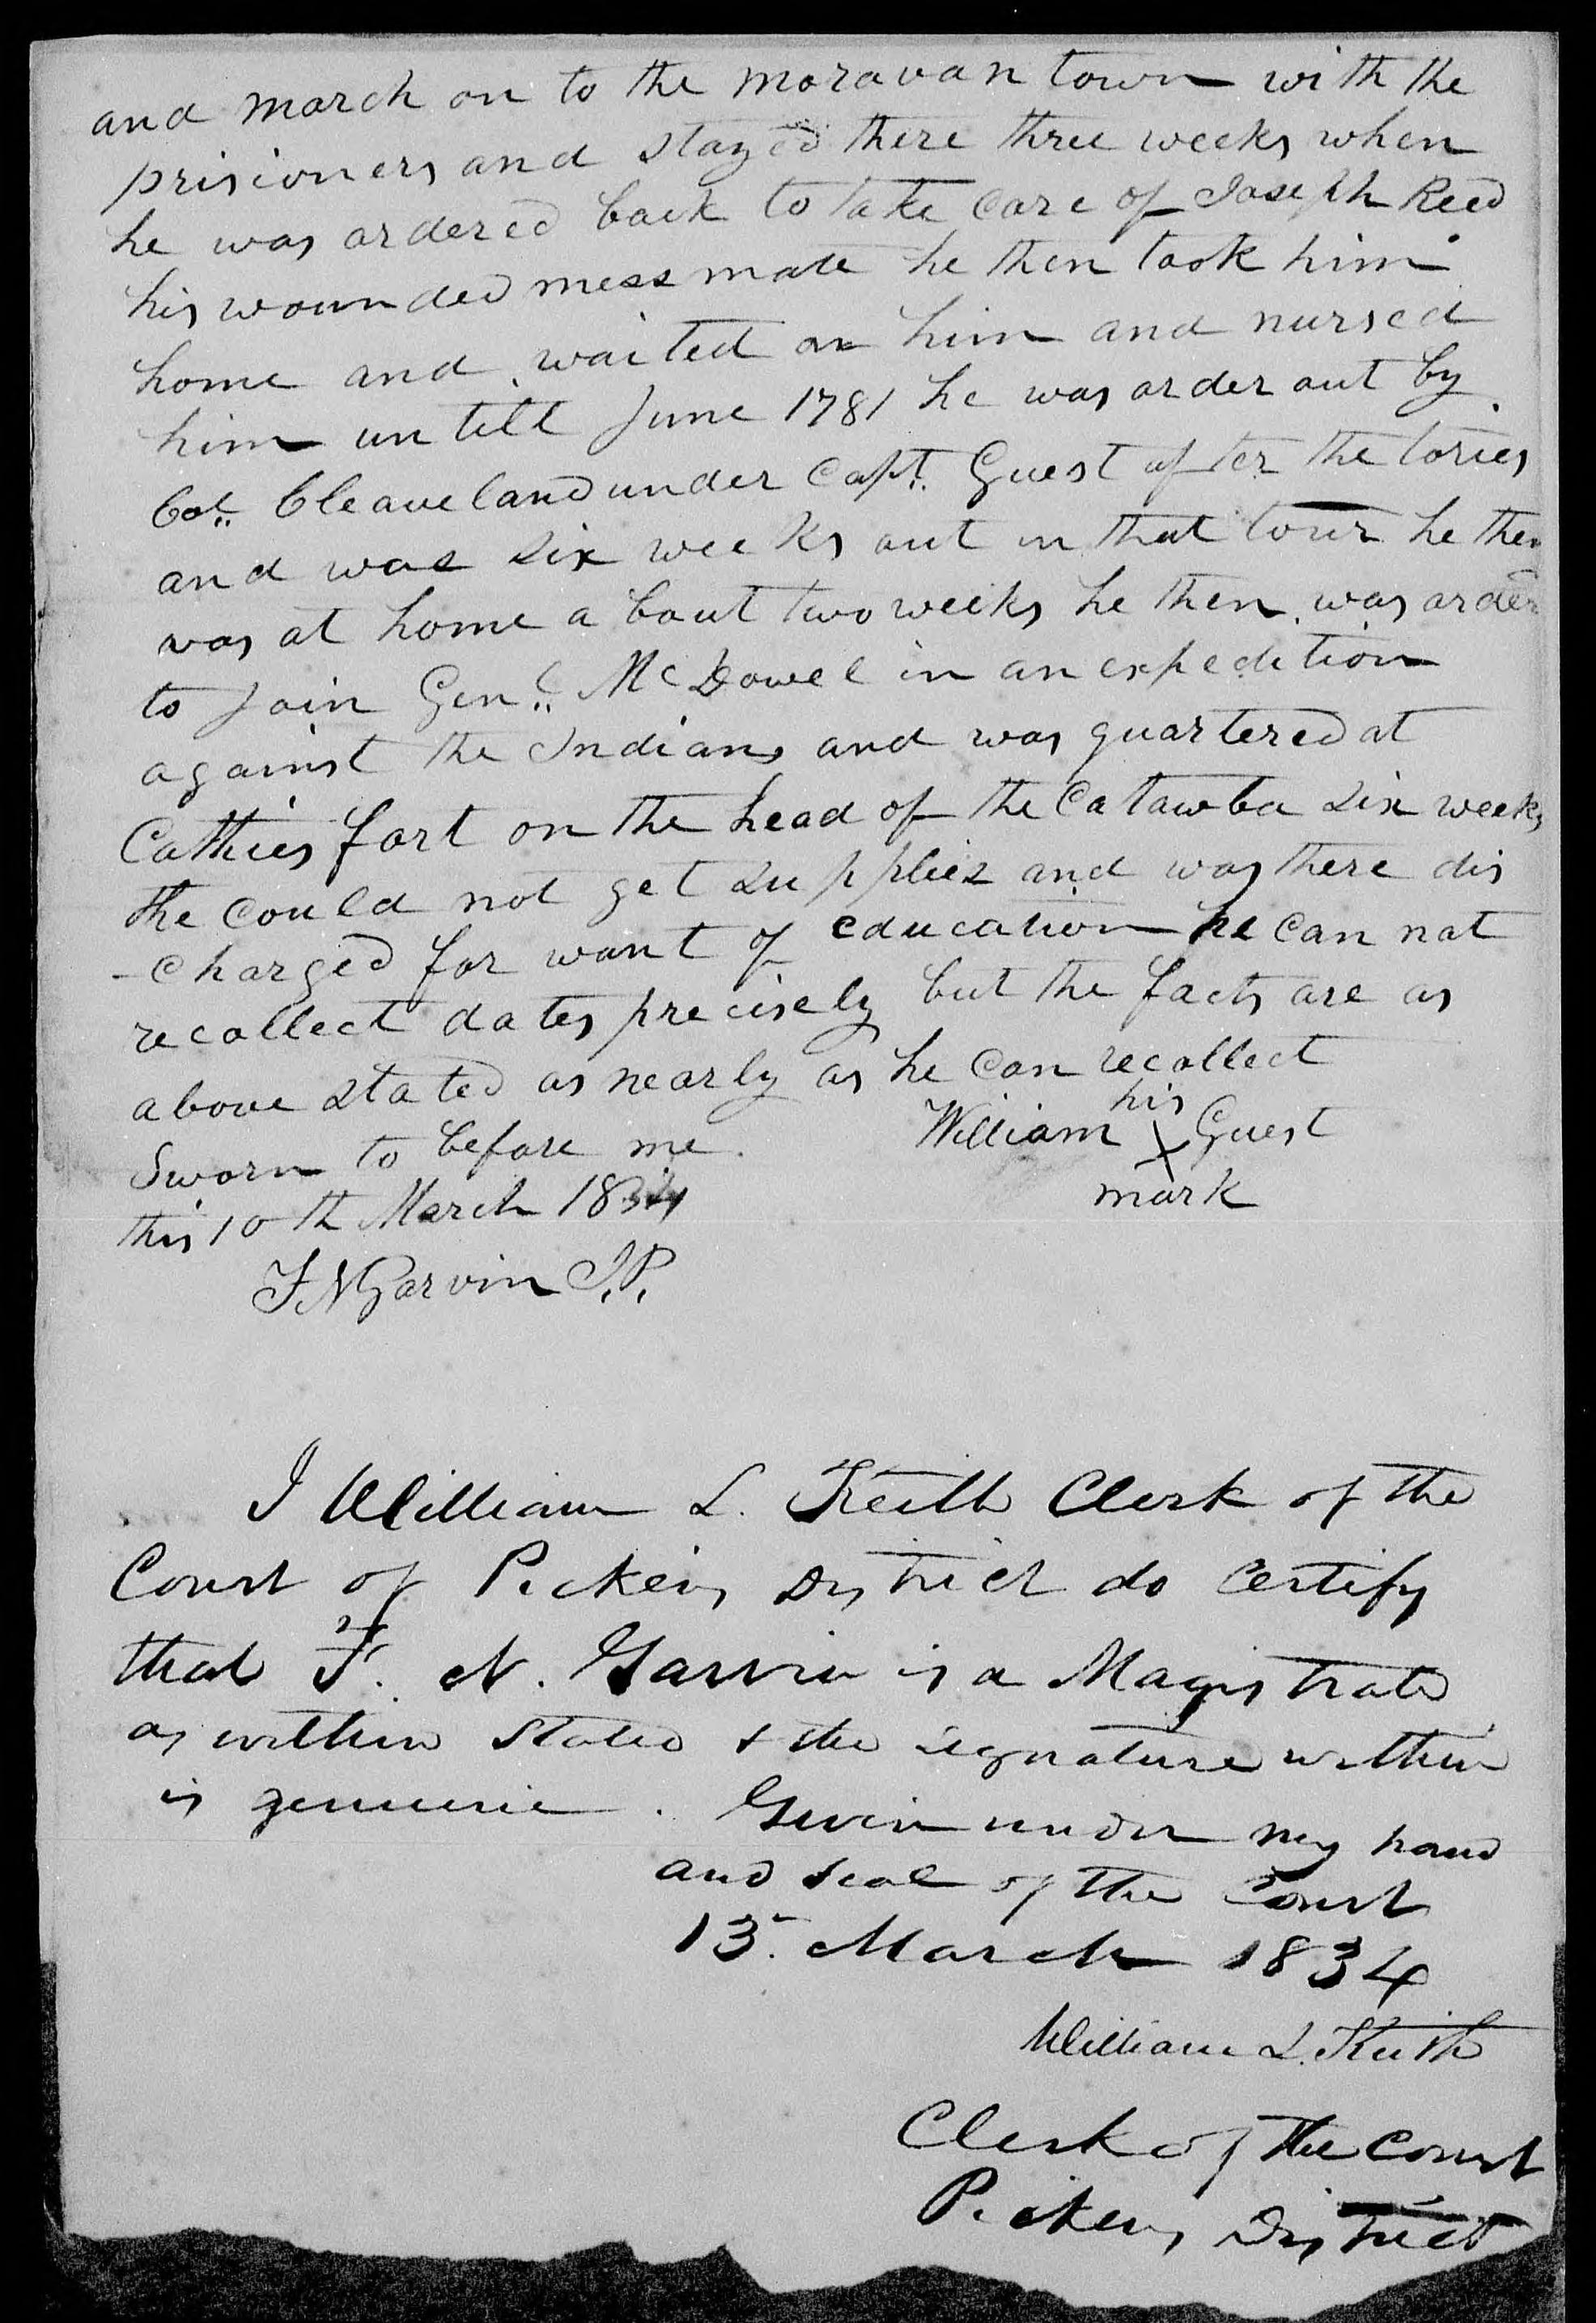 and march on to the moravan town with the
prisioners and stayed there three weeks when
he was ordered back to take care of Joseph Reed
his wounded mess mate he then took him
home and waited on him and nursed
him un till June 1781 he was order out by
Col. Cleaveland under Capt. Guest after the tories
and was six weeks out in that tour he then
was at home a bout two weeks he then was order
to join Genl. McDowel in an expedition
against the Indians and was quartered at
Cathies fort on the head of the Catawba six weeks
the could not get supplies and was there dis
-charged for want of education he can not
recollect dates precisely but the facts are as
above stated as nearly as he can recollect
Sworn to before me. William his X mark Guest
this 10th March 1834
F N Garvin J.P.
I William L. Keith Clerk of the
Court of Pickens District do certify
that F. N. Garvin is a Magistrate
as within stated & the signature within
is genuine. Given under my hand
and seal of the Court
13. March 1834
William L. Keith
Clerk of the Court
Pickens District